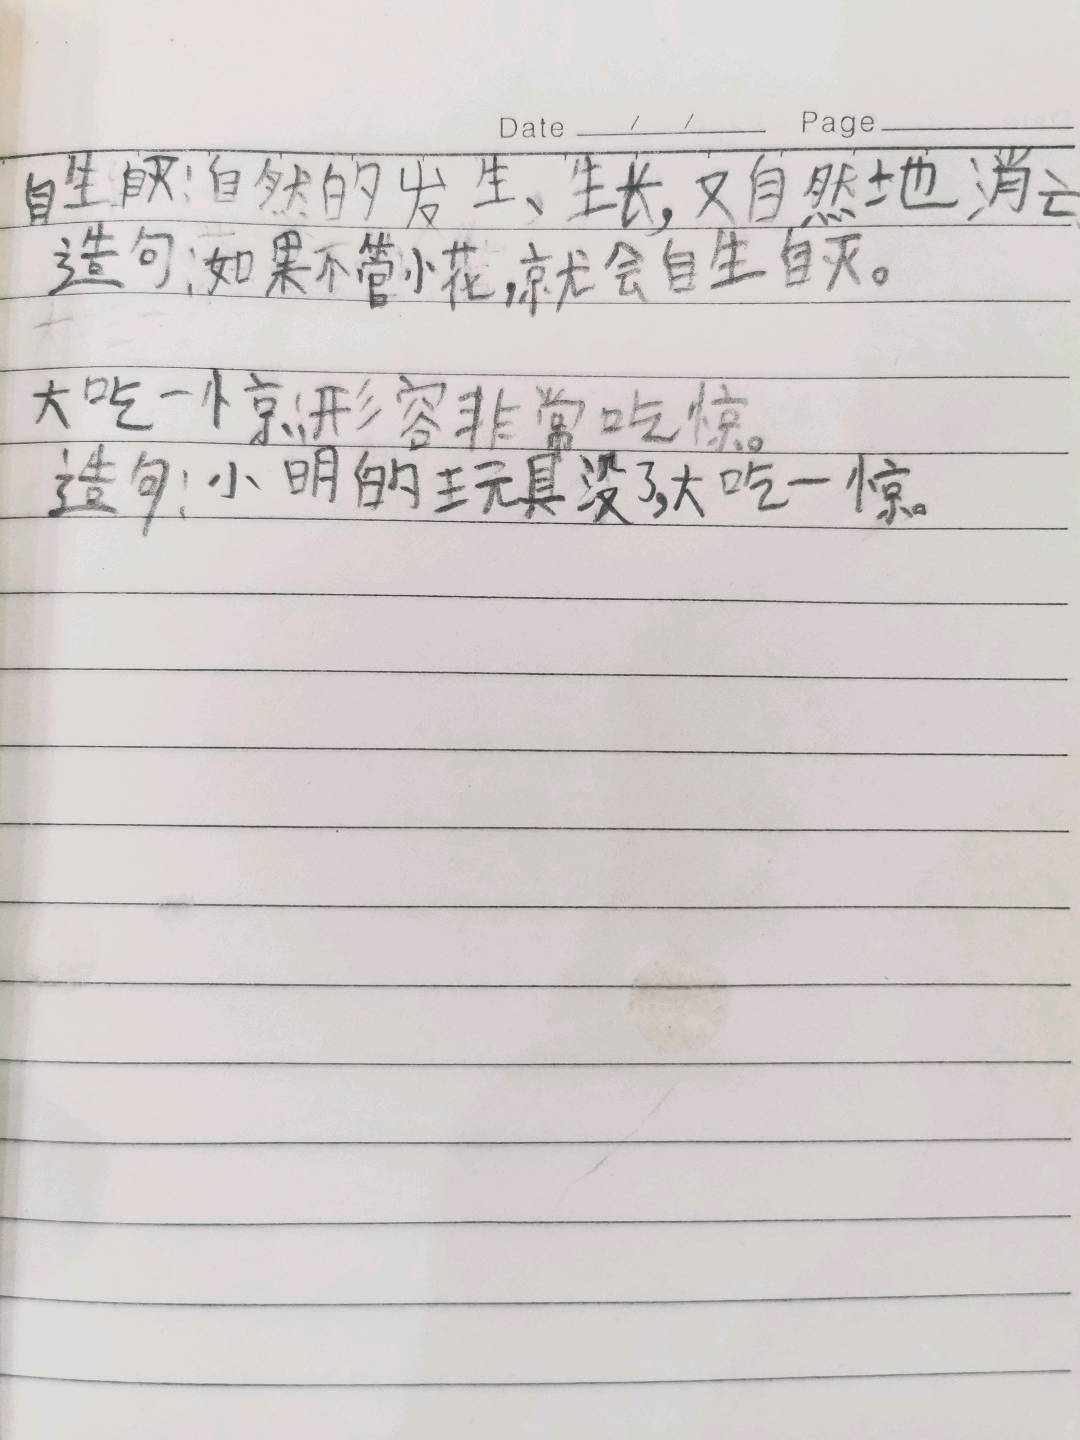 Date / / Page
自生自灭:自然的发生、生长,又自然地消亡
造句:如果不管小花,就会自生自灭。
大吃一惊:形容非常吃惊。
造句:小明的玩具没了,大吃一惊。